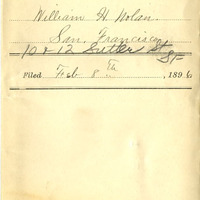 William H. Nolan.
San Francisco,
10 & 12 Sutter St
SF
Filed Feb 8th, 1896